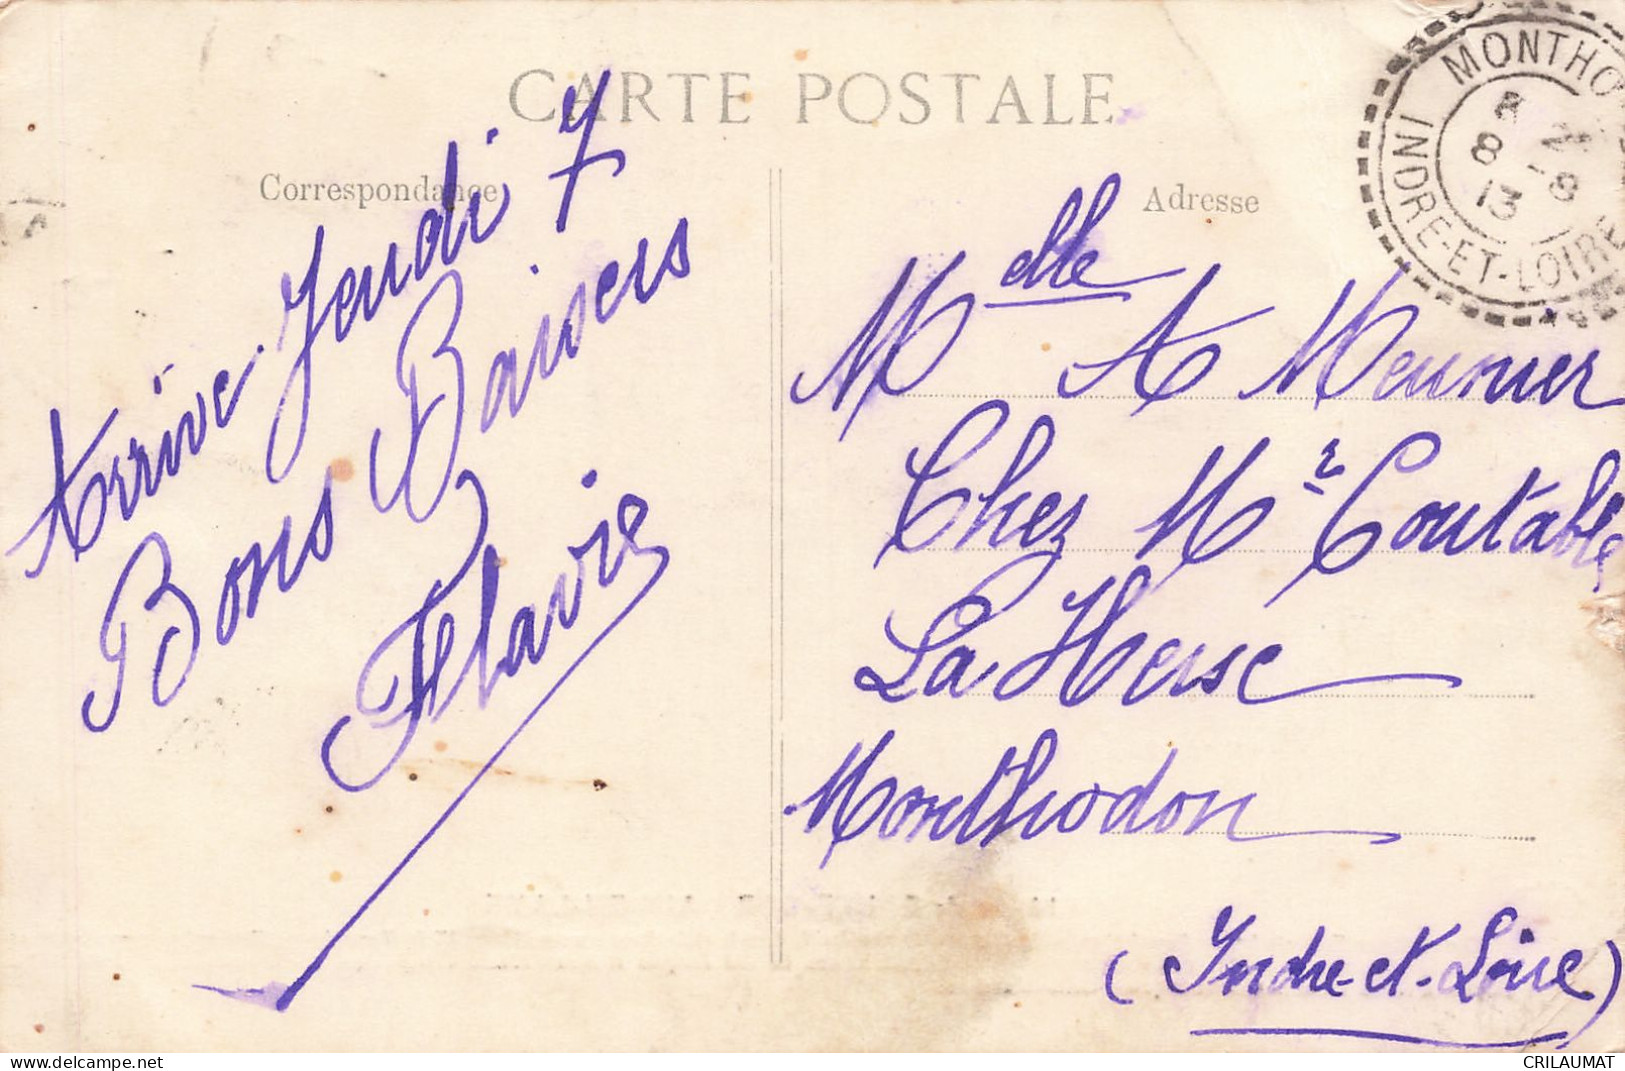 CARTE POSTALE
Correspondance
Arrive Jeudi 7
Bons Baisers
Flavie
Adresse
Melle A Meunier
Chez Mr Coutable
La Herse
Monthodon
(Indre-et-Loire)
MONTHO
INDRE-ET-LOIRE
8
13
CRILAUMAT